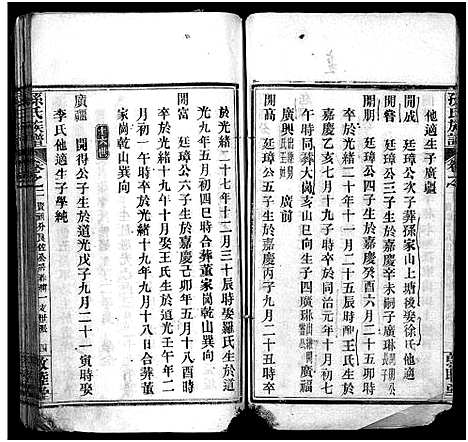 孫氏族譜
他適生子廣疆
開成　廷璋公次子葬孫家山上塘後娶徐氏他適
開朋　廷璋公三子生於嘉慶辛未嗣子廣
開期　廷璋公四子生於嘉慶癸酉六月二十五卯時
卒於光緒十九年十一月二十五辰時配王氏生於
嘉慶乙亥七月十九亥時卒於同治元年十月初一
午時同葬大崗亥山巳向生子四廣琳廣福
廣興　廣前
開高　廷璋公五子生於嘉慶丁丑九月二十二亥時
於光緒二十七年十二月三十辰時娶羅氏生於道
光九年五月初四巳時合葬董家崗乾山巽向
開富　廷璋公六子生於嘉慶己卯年五月十八酉時
卒於光緒十九年十月娶王氏生於道光壬午年二
月初一午時卒於光緒十九年九月十八日合葬董
家崗乾山巽向
廣疆　開得公子生於道光戊子九月二十一寅時娶
李氏他適生子學純
孫氏族譜
敦睦堂